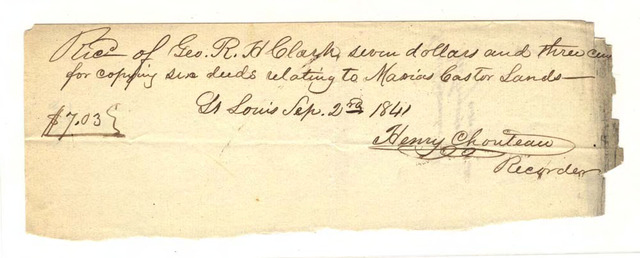 Recd of Geo. R. H Clark, seven dollars and three cen
for copying six deeds relating to Marias Castor Lands—
St Louis Sep. 2nd 1841
$7.03
Henry Chouteau
Recorder